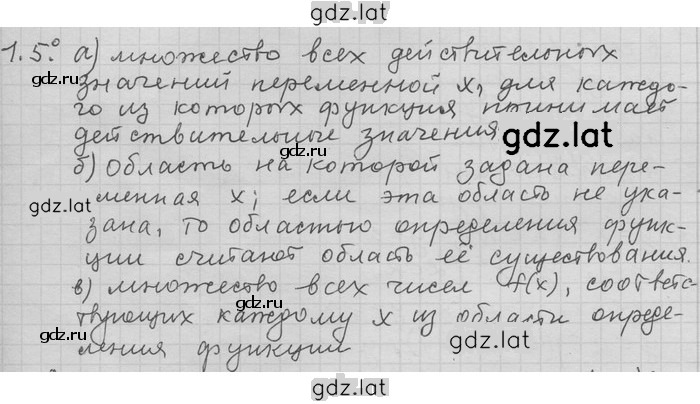 gdz.lat
1.5.° а) множество всех действительных
значений переменной x, для каждо-
го из которых функция птинимает
действительные значения
gdz.lat
gdz.lat
б) область на которой задана пере-
менная x; если эта область не ука-
gdz.lat
зана, то областью определения функ-
ции считают область её существования.
в) множество всех чисел f(x), соответс-
gdz.lat
твующих каждому x из области опреде-
gdz.lat
gdz.lat
ления функции
gdz.lat